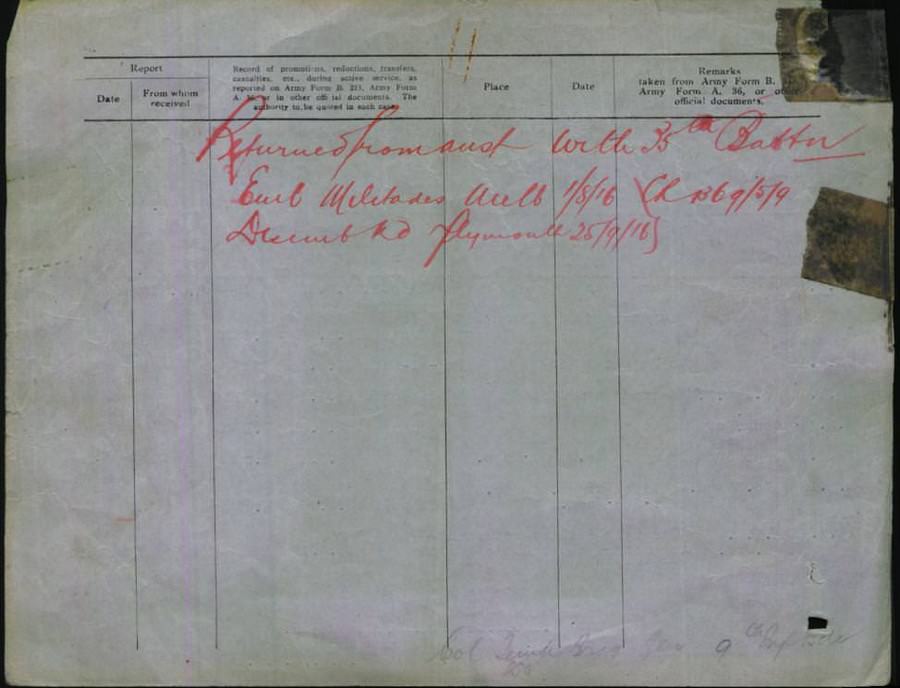 Report
Date
From whom
received
Record of promotions, reductions, transfers,
casualties, etc., during active service, as
reported on Army Form B. 213, Army Form
A. 36, or in other official documents. The
authority to be quoted in such case.
Place
Date
Remarks
taken from Army Form B.
Army Form A. 36, or other
official documents.
Returned from aust with 35th Battn
Emb Miltiades Melb 1/8/16
Disembkd Plymouth 25/9/16
9th